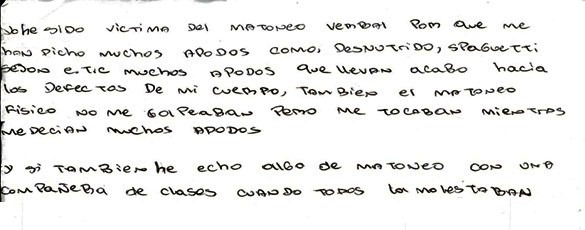 yo he sido victima Del matoneo verbal Por que me
han Dicho muchos Apodos como, Desnutrido, spaguetti
pejon e.tic muchos Apodos que llevan acabo hacia
los Defectos De mi cuerpo, tambien el matoneo
fisico no me golpeaban pero me tocaban mientras
me Decian muchos Apodos
y si tambien he echo algo de matoneo con una
compañera de clases cuando todos la molestaban